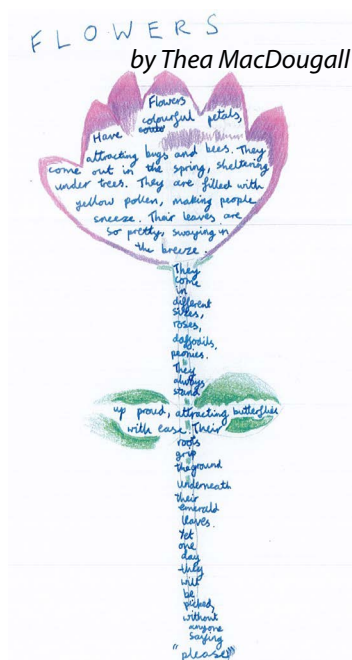 FLOWERS
by Thea MacDougall
Flowers
Have colourful petals,
attracting bugs and bees. They
come out in the spring, sheltering
under trees. They are filled with
yellow pollen, making people
sneeze. Their leaves are
so pretty, swaying in
the breeze.
They
come
in
different
sizes,
roses,
daffodils,
peonies.
They
always
stand
up proud, attracting butterflies
with ease. Their
roots
grip
the ground
underneath
their
emerald
leaves.
Yet
one
day
they
will
be
picked,
without
anyone
saying
"please"